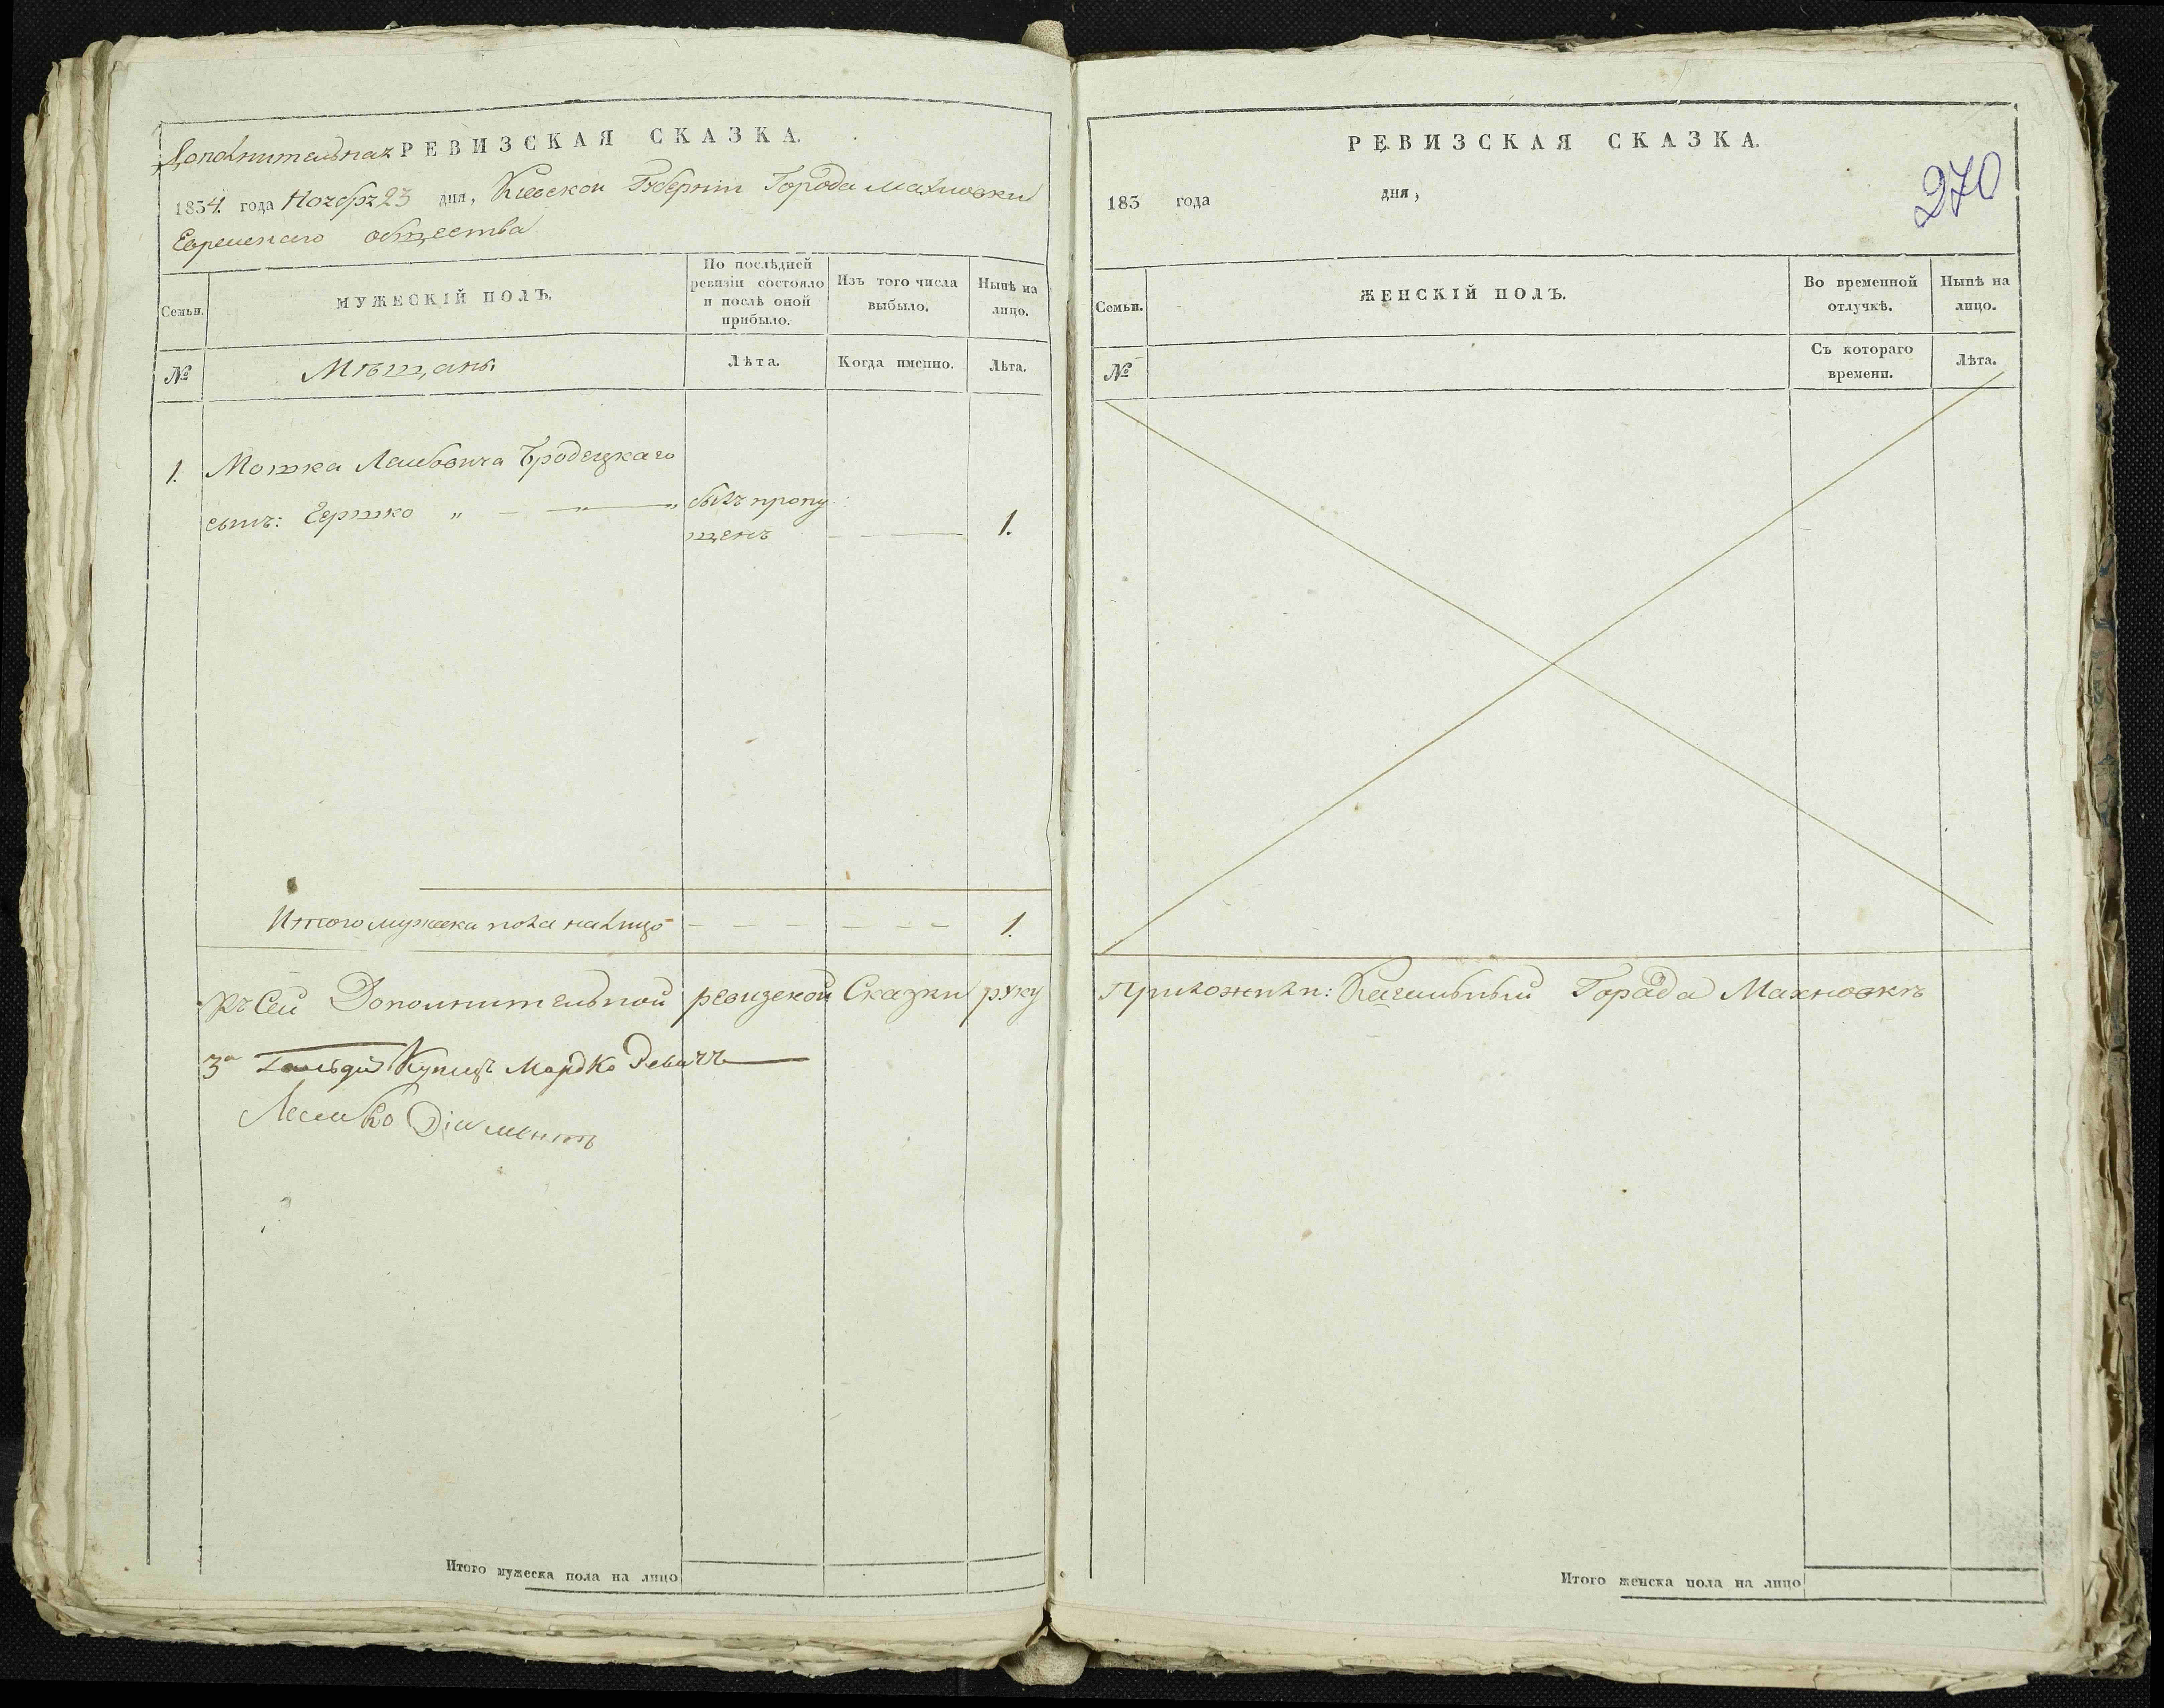 Дополнительная РЕВИЗСКАЯ СКАЗКА.
1834. года Ноября 23 дня, Киевской Губернiи Города Махновки
Еврейскаго общества
Семьи.
МУЖЕСКIЙ ПОЛЪ.
По послѣдней ревизiи состояло и послѣ оной прибыло.
Изъ того числа выбыло.
Нынѣ на лицо.
№
Мѣщанъ.
Лѣта.
Когда именно.
Лѣта.
1. Мошка Лейбовича Бродецкаго
сынъ: Гершко был пропу
щенъ 1.
Итого мужеска пола налицо 1.
Къ Сей Дополнительной ревизской Сказки руку
За Купецъ Мордко
Лейбко Дiаментъ
Итого мужеска пола на лицо
РЕВИЗСКАЯ СКАЗКА.
270
183 года дня,
Семьи.
ЖЕНСКIЙ ПОЛЪ.
Во временной отлучкѣ.
Нынѣ на лицо.
№
Съ котораго времени.
Лѣта.
Приложили: Кагальный Города Махновкѣ
Итого женска пола на лицо